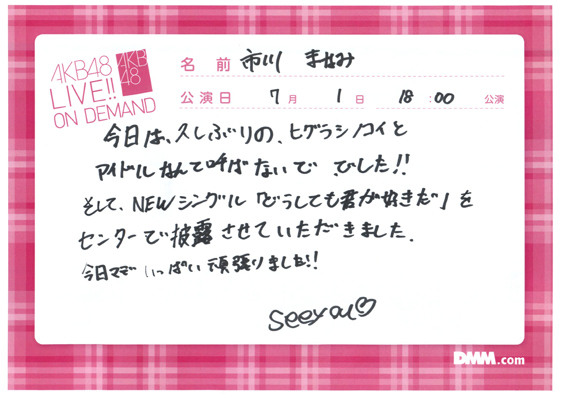 AKB48
LIVE!!
ON DEMAND
AKB
48
名前 市川 まなみ
公演日 7月 1日 18:00 公演
今日は、久しぶりの、ヒグラシノコイと
アイドルなんて呼ばないで でした!!
そして、NEWシングル「どうしても君が好きだ」を
センターで披露させていただきました.
今日ママでいっぱい頑張りました!!
seeyou♡
DMM.com